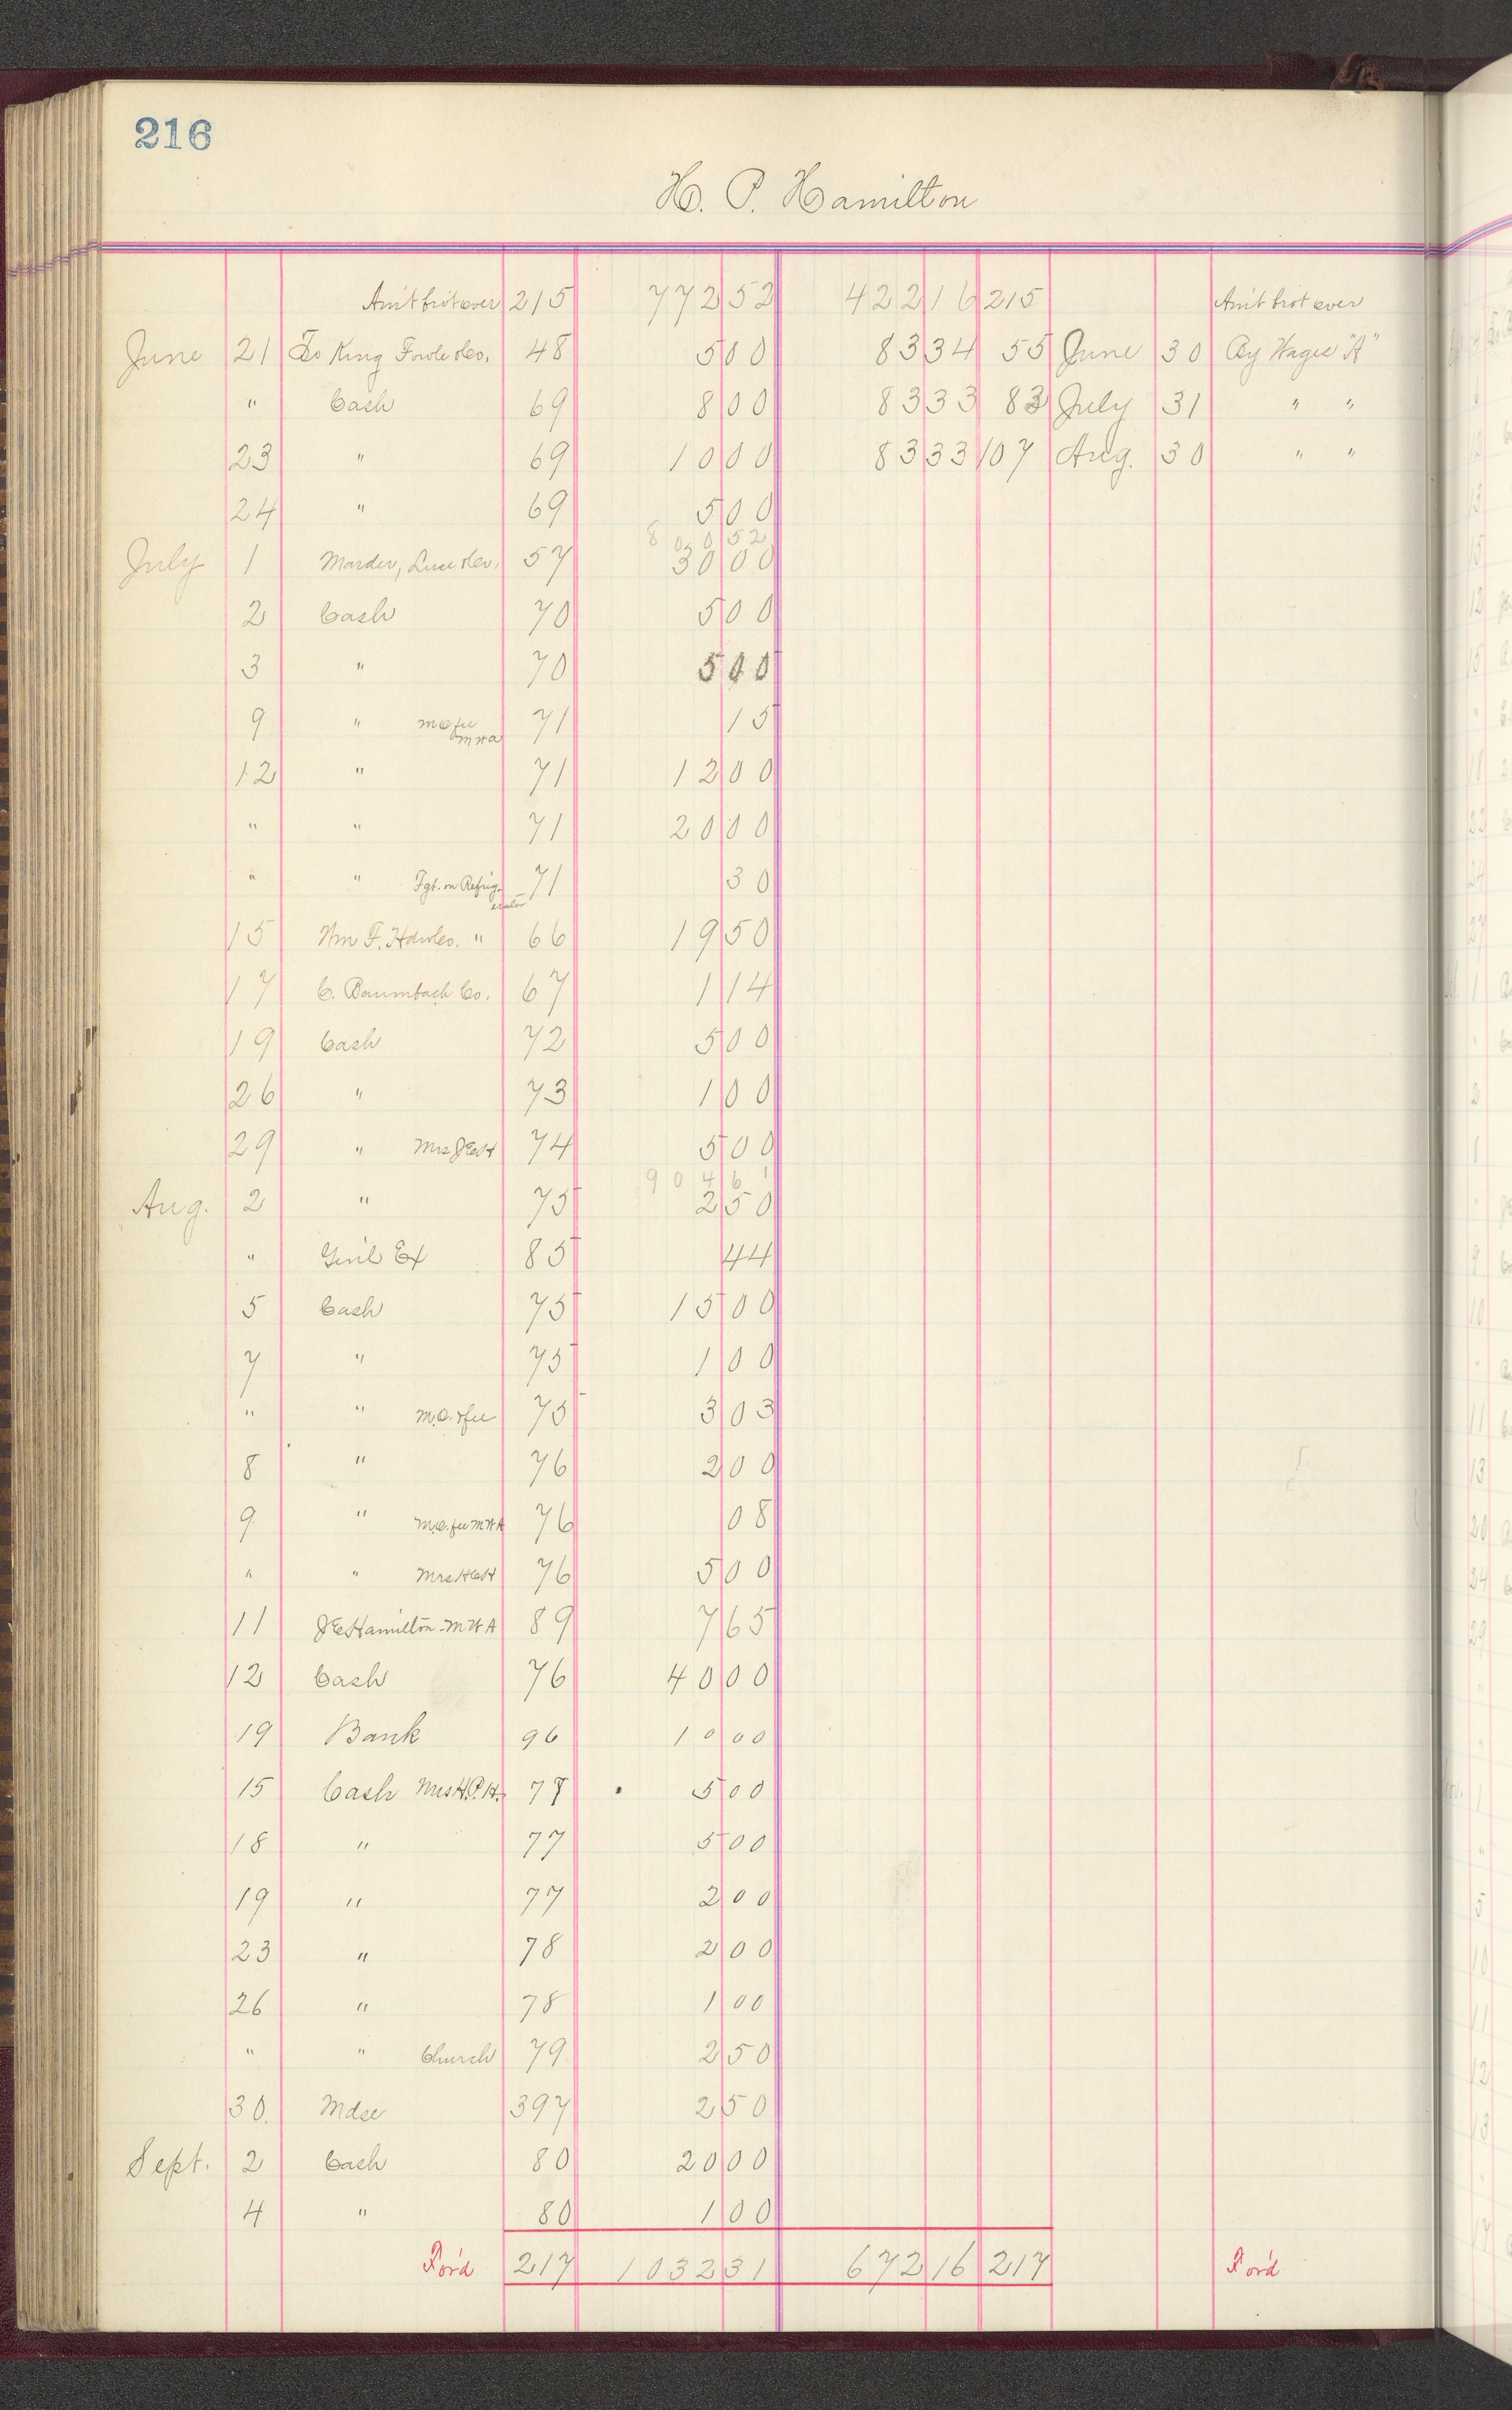 216
H. P. Hamilton
Am't bro't over 215 772 52 422 16 215 Am't bro't over
June 21 To King Fowle & Co. 48 5 00 83 34 55 June 30 By Wages "A"
" Cash 69 8 00 83 33 83 July 31 " "
23 " 69 10 00 83 33 107 Aug. 30 " "
24 " 69 5 00
800 52
July 1 Marder, Luse & Co. 57 30 00
2 Cash 70 5 00
3 " 70 5 00
9 " M O fee M W A 71 15
12 " 71 12 00
" " 71 20 00
" " Fgt. on Refrigerator 71 30
15 Wm F. Hdw Co. " 66 19 50
17 C. Baumbach Co. 67 1 14
19 Cash 72 5 00
26 " 73 1 00
29 " Mrs J E H 74 5 00
904 61
Aug. 2 " 75 2 50
" Gen'l Ex 85 44
5 Cash 75 15 00
7 " 75 1 00
" " M.O. & fee 75 3 03
8 " 76 2 00
9 " M.O. fee M W A 76 08
" " Mrs 76 5 00
11 J E Hamilton - M W A 89 7 65
12 Cash 76 40 00
19 Bank 96 10 00
15 Cash Mrs H. P. H. 77 5 00
18 " 77 5 00
19 " 77 2 00
23 " 78 2 00
26 " 78 1 00
" " Church 79 2 50
30 Mdse 397 2 50
Sept. 2 Cash 80 20 00
4 " 80 1 00
For'd 217 1032 31 672 16 217 For'd